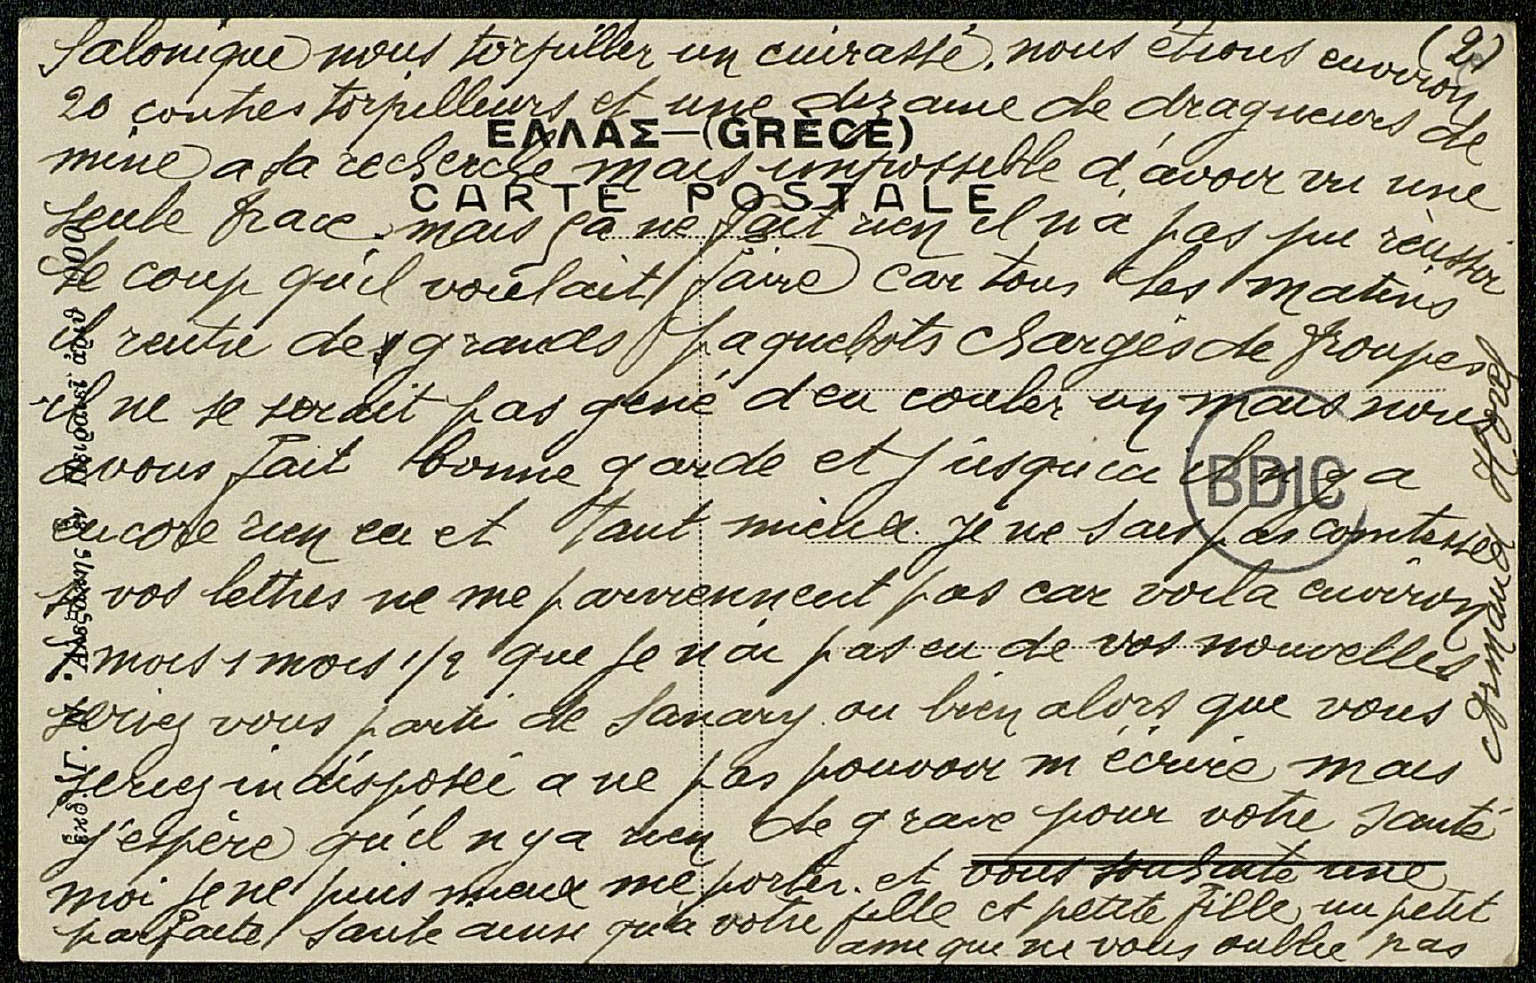 (2)
Salonique nous torpiller un cuirassé. nous étions environ
20 contres torpilleurs et une dizaine de dragueurs de
ΕΛΛΑΣ—(GRÈCE)
mine a sa recherche mais impossible d'avoir vu une
CARTE POSTALE
seule trace. mais ça ne fait rien il n'a pas pu réussir
le coup qu'il voulait faire car tous les matins
il rentre de grands paquebots chargés de troupes
il ne se serait pas gené d'en couler un mais nous
avons fait bonne garde et jusqu'ici il n y a
encore rien eu et tant mieux. Je ne sais pas comtesse
si vos lettres ne me parviennent pas car voila environ
1 mois 1 mois 1/2 que je n'ai pas eu de vos nouvelles
seriez vous parti de Sanary ou bien alors que vous
seriez indisposée a ne pas pouvoir m'écrire mais
j'espère qu'il n y a rien de grave pour votre santé
moi je ne puis mieux me porter. et vous souhaite une
parfaite santé ainsi qu'a votre fille et petite fille un petit
ami qui ne vous oublie pas
Armand Horel
BDIC